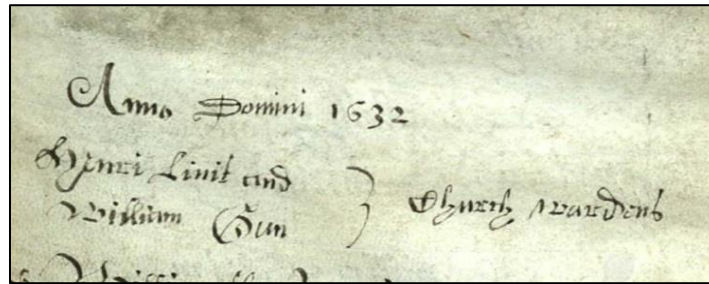 Anno Domini 1632
Henri Linit and
William Gun } Church wardens
William